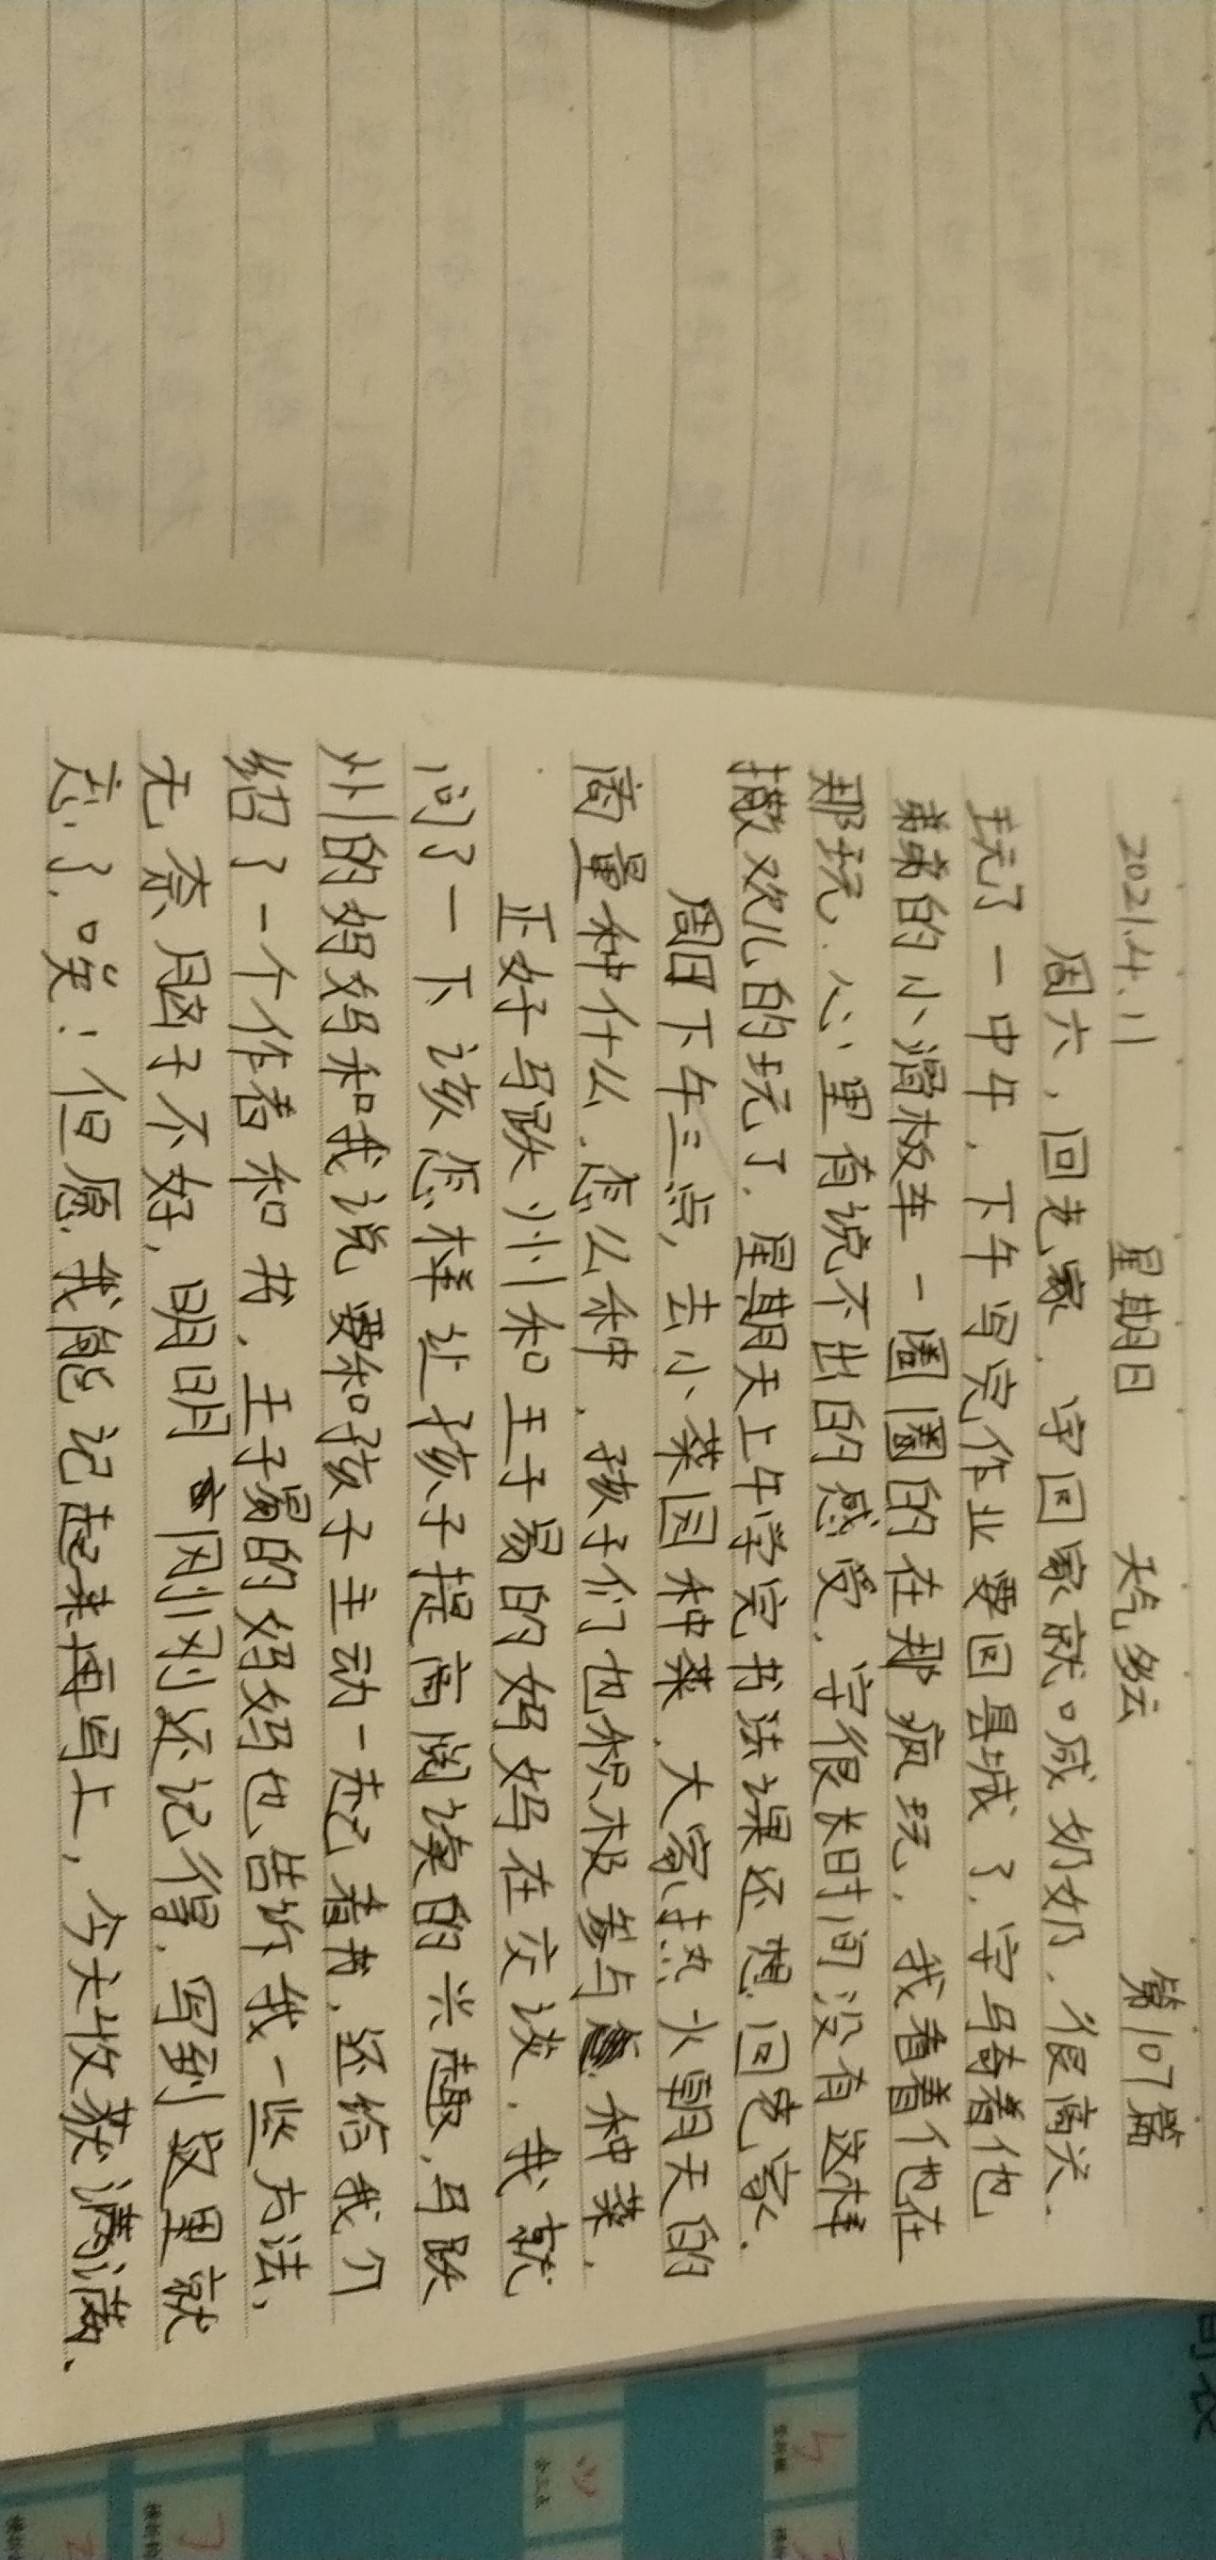 2021.4.11 星期日 天气多云 第107篇
周六，回老家，宇回家就喊奶奶，很高兴，
玩了一中午，下午写完作业要回县城了，宇骑着他
弟弟的小滑板车一圈圈的在那疯玩，我看着他在
那玩，心里有说不出的感受，宇很长时间没有这样
撒欢儿的玩了，星期天上午学完书法课还想回老家.
周日下午三点，去小菜园种菜，大家热火朝天的
商量种什么，怎么种，孩子们也积极参与种菜，
正好马跃川和王子易的妈妈在交谈，我就
问了一下该怎样让孩子提高阅读的兴趣，马跃
川的妈妈和我说要和孩子主动一起看书，还给我介
绍了一个作者和书，王子易的妈妈也告诉我一些方法，
无奈脑子不好，明明刚刚还记得，写到这里就
忘了，唉！但愿我能记起来再写上，今天收获满满.